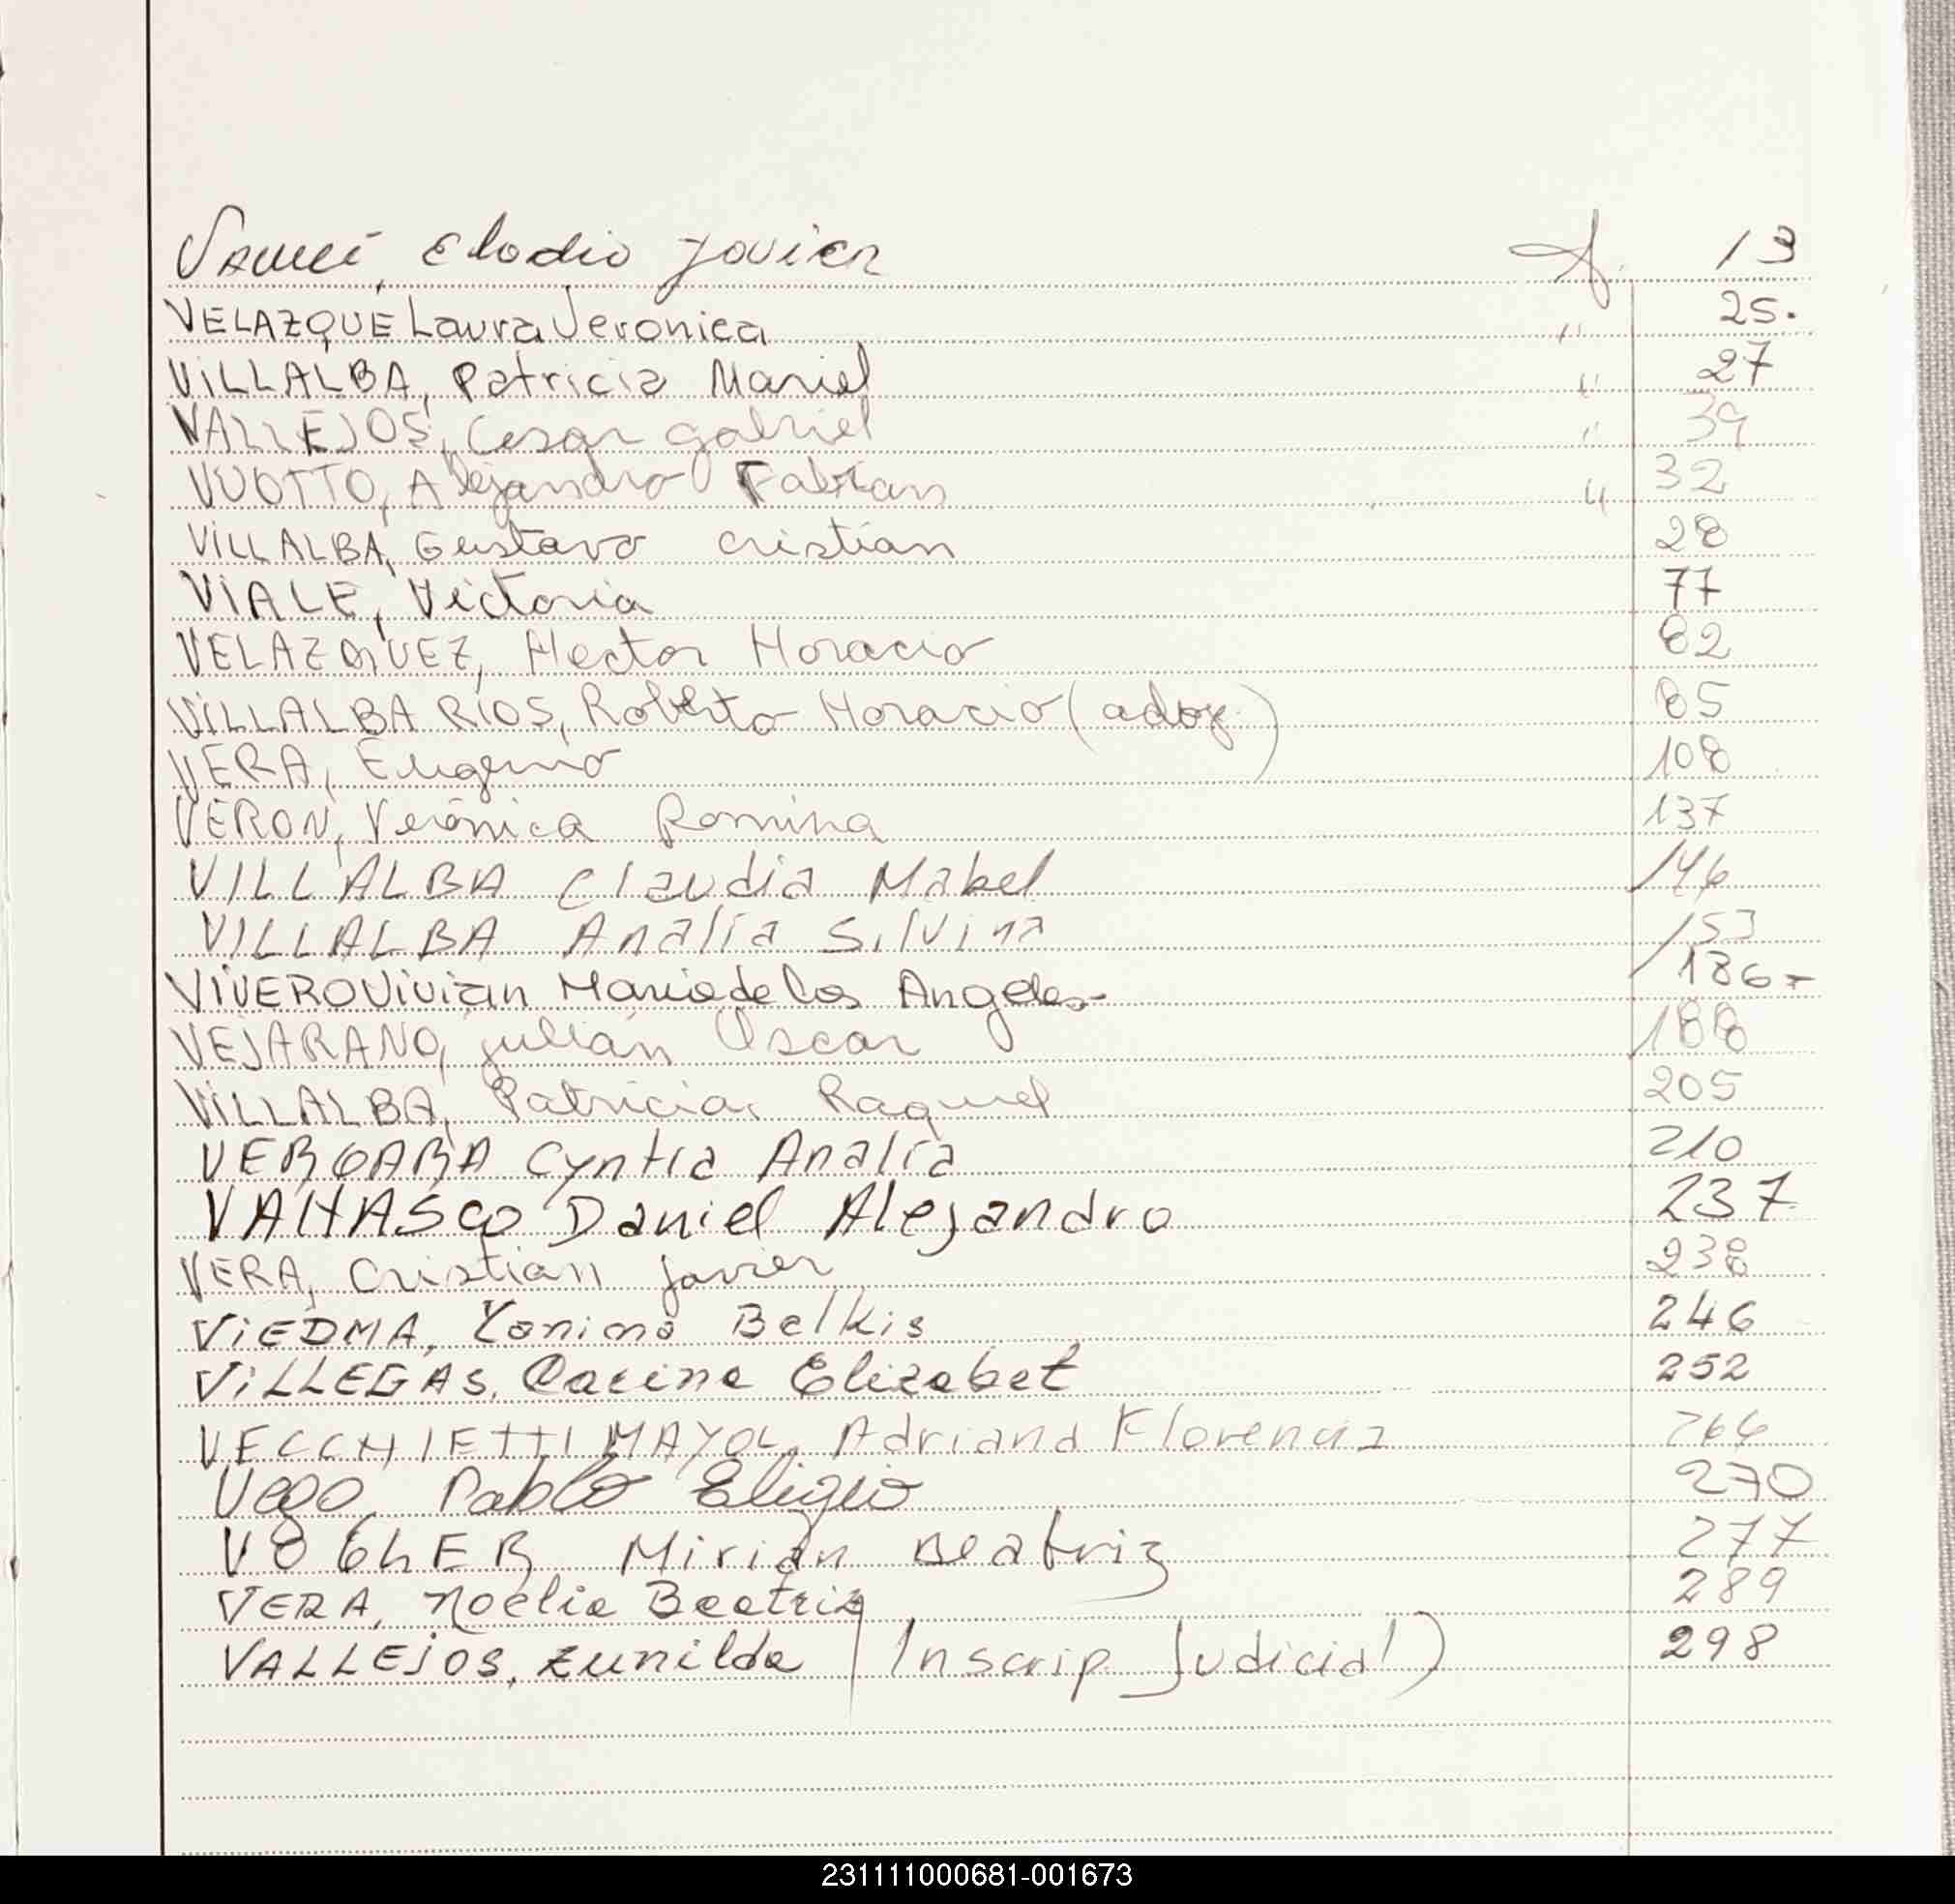 Elodio Javier A. 13
VELAZQUE Laura Veronica " 25.
VILLALBA, Patricia Mariel " 27
VALLEJOS, Cesar gabriel " 39
VUOTTO, Alejandro Fabian " 32
VILLALBA, Gustavo cristian 28
VIALE, Victoria 77
VELAZQUEZ, Hector Horacio 82
VILLALBA RIOS, Roberto Horacio (adop.) 85
VERA, Eugenio 108
VERON, Verónica Romina 137
VILLALBA Claudia Mabel 146
VILLALBA Analía Silvina 153
VIVERO Vivian Maria de los Angeles 186-
VEJARANO, julián Oscar 188
VILLALBA, Patricia Raquel 205
VERGARA Cyntia Analía 210
Daniel Alejandro 237
VERA, Cristian Javier 238
VIEDMA, Yanina Belkis 246
VILLEGAS, Carina Elizabet 252
VECCHIETTI MAYOL, Adriana Florencia 264
Vega Pablo Eligio 270
Mirian Beatriz 277
VERA, Noelia Beatriz 289
VALLEJOS, Zunilda (Inscrip. Judicial) 298
231111000681-001673